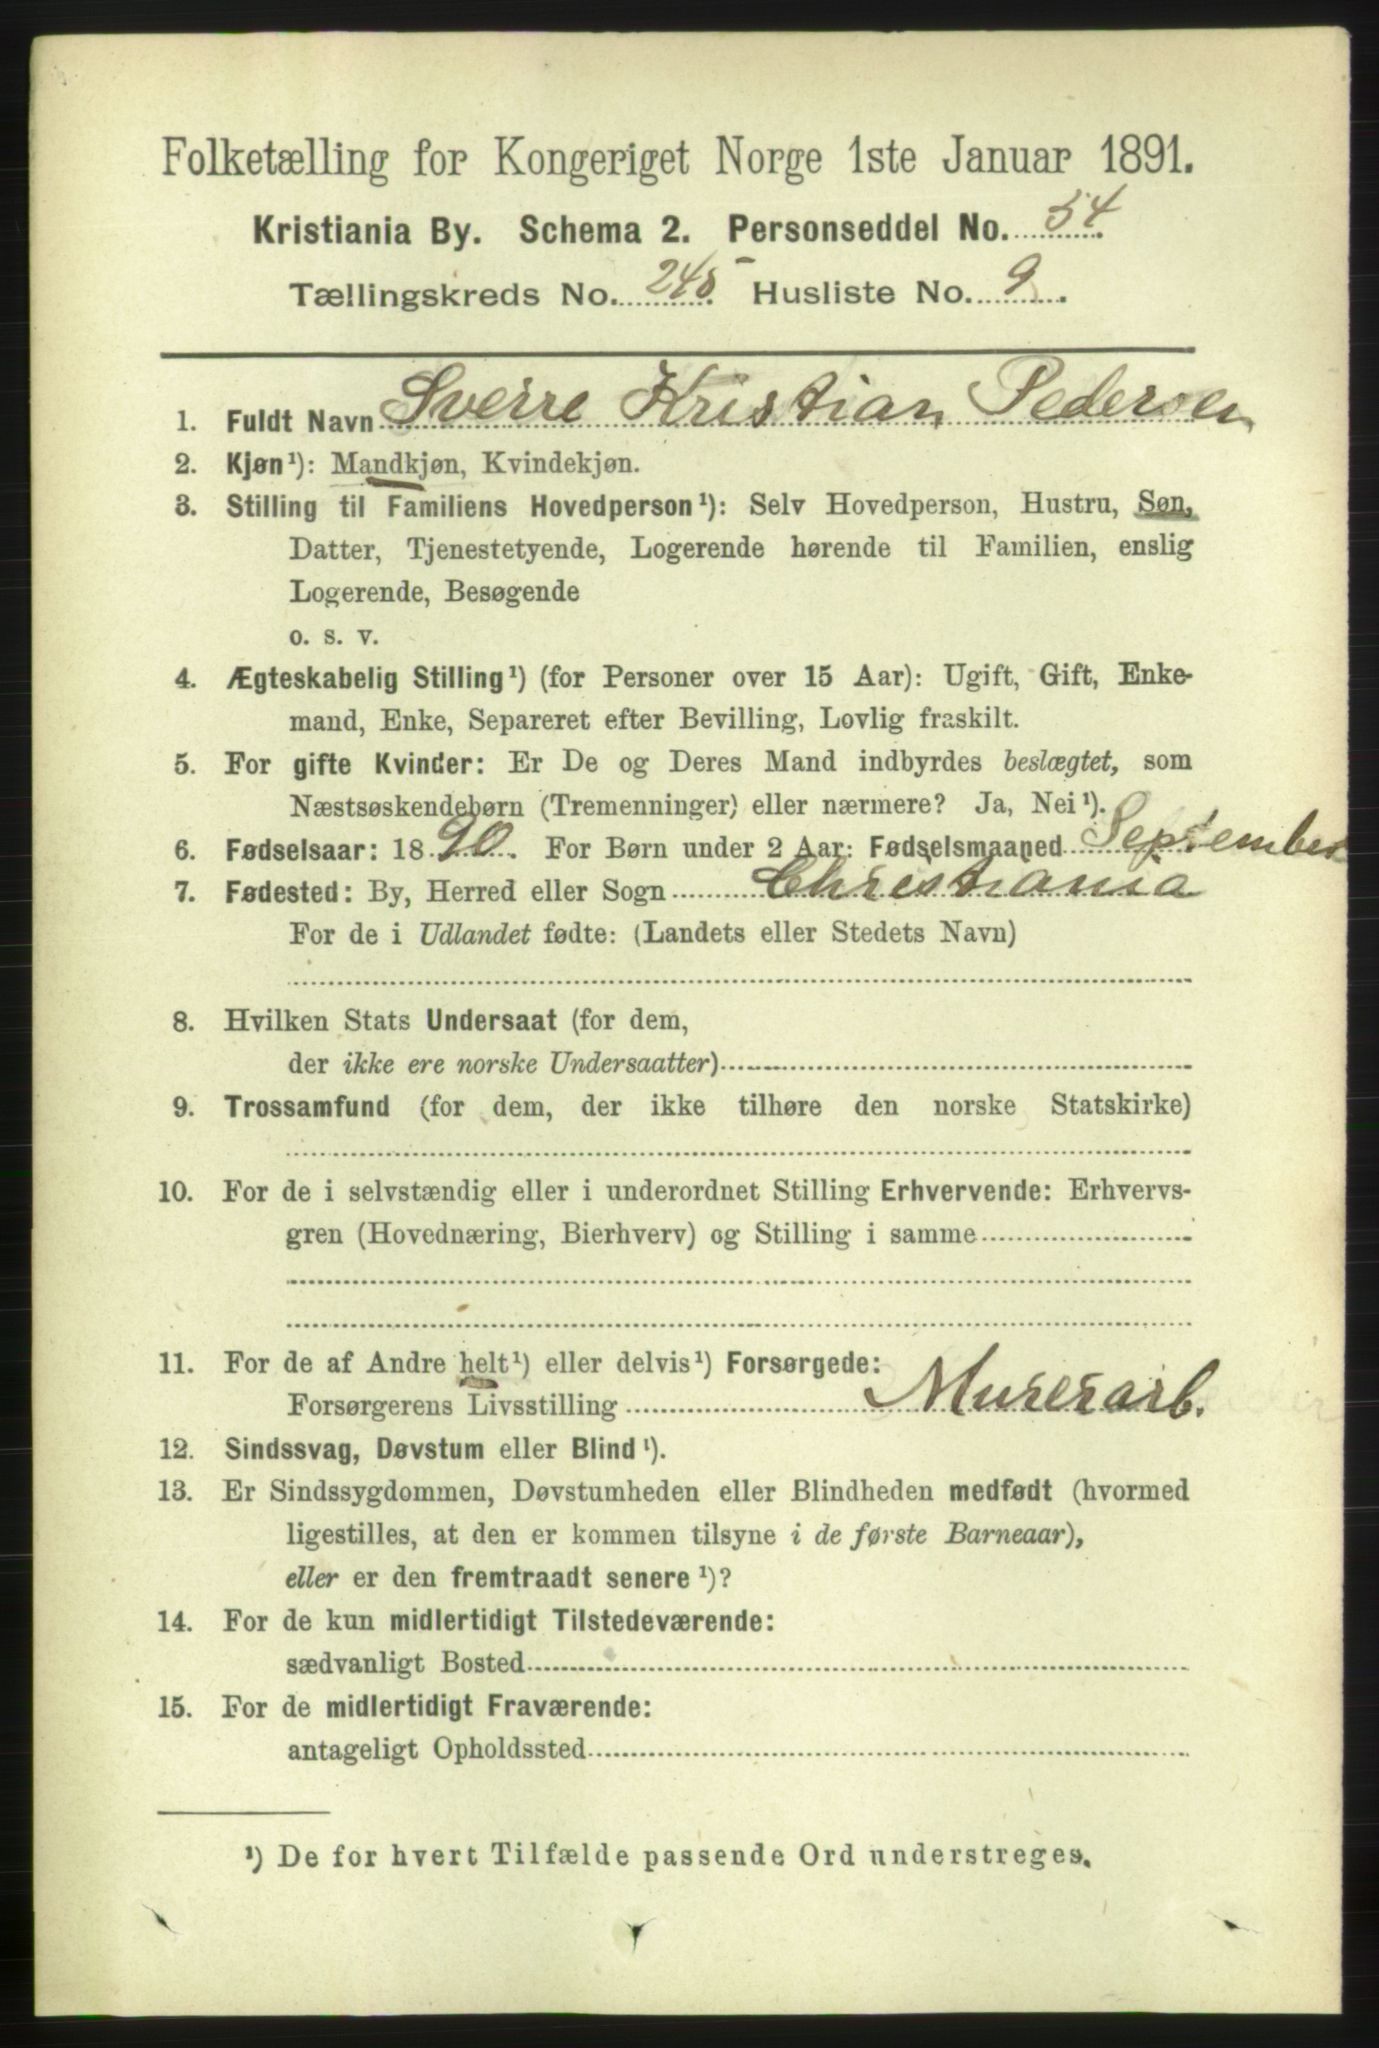 Folketælling for Kongeriget Norge 1ste Januar 1891.
Kristiania By. Schema 2. Personseddel No. 54.
Tællingskreds No. 245. Husliste No. 9.
1. Fuldt Navn Sverre Kristian Pedersen
2. Kjøn¹): Mandkjøn, Kvindekjøn.
3. Stilling til Familiens Hovedperson¹): Selv Hovedperson, Hustru, Søn,
Datter, Tjenestetyende, Logerende hørende til Familien, enslig
Logerende, Besøgende
o. s. v.
4. Ægteskabelig Stilling¹) (for Personer over 15 Aar): Ugift, Gift, Enke-
mand, Enke, Separeret efter Bevilling, Lovlig fraskilt.
5. For gifte Kvinder: Er De og Deres Mand indbyrdes beslægtet, som
Næstsøskendebørn (Tremenninger) eller nærmere? Ja, Nei¹).
6. Fødselsaar: 1890. For Børn under 2 Aar: Fødselsmaaned September
7. Fødested: By, Herred eller Sogn Christiania
For de i Udlandet fødte: (Landets eller Stedets Navn)
8. Hvilken Stats Undersaat (for dem,
der ikke ere norske Undersaatter)
9. Trossamfund (for dem, der ikke tilhøre den norske Statskirke)
10. For de i selvstændig eller i underordnet Stilling Erhvervende: Erhvervs-
gren (Hovednæring, Bierhverv) og Stilling i samme
11. For de af Andre helt¹) eller delvis¹) Forsørgede:
Forsørgerens Livsstilling Murerarb.
12. Sindssvag, Døvstum eller Blind¹).
13. Er Sindssygdommen, Døvstumheden eller Blindheden medfødt (hvormed
ligestilles, at den er kommen tilsyne i de første Barneaar),
eller er den fremtraadt senere¹)?
14. For de kun midlertidigt Tilstedeværende:
sædvanligt Bosted
15. For de midlertidigt Fraværende:
antageligt Opholdssted
¹) De for hvert Tilfælde passende Ord understreges.